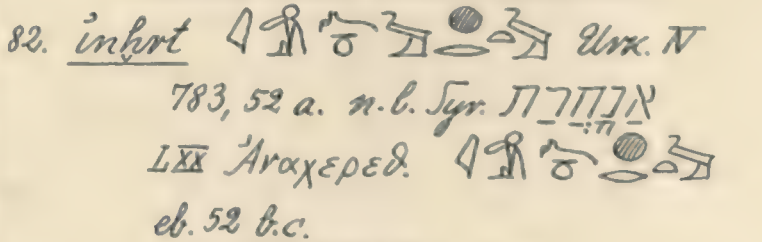 82. inḫrt Urk. IV
783, 52 a. n. l. Syr. אֲנָחֲרַת
LXX Ἀναχερεθ.
eb. 52 b.c.